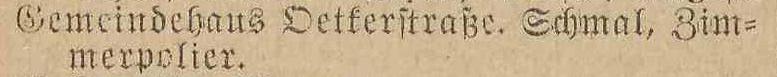 Gemeindehaus Oetkerstraße. Schmal, Zim-
merpolier.